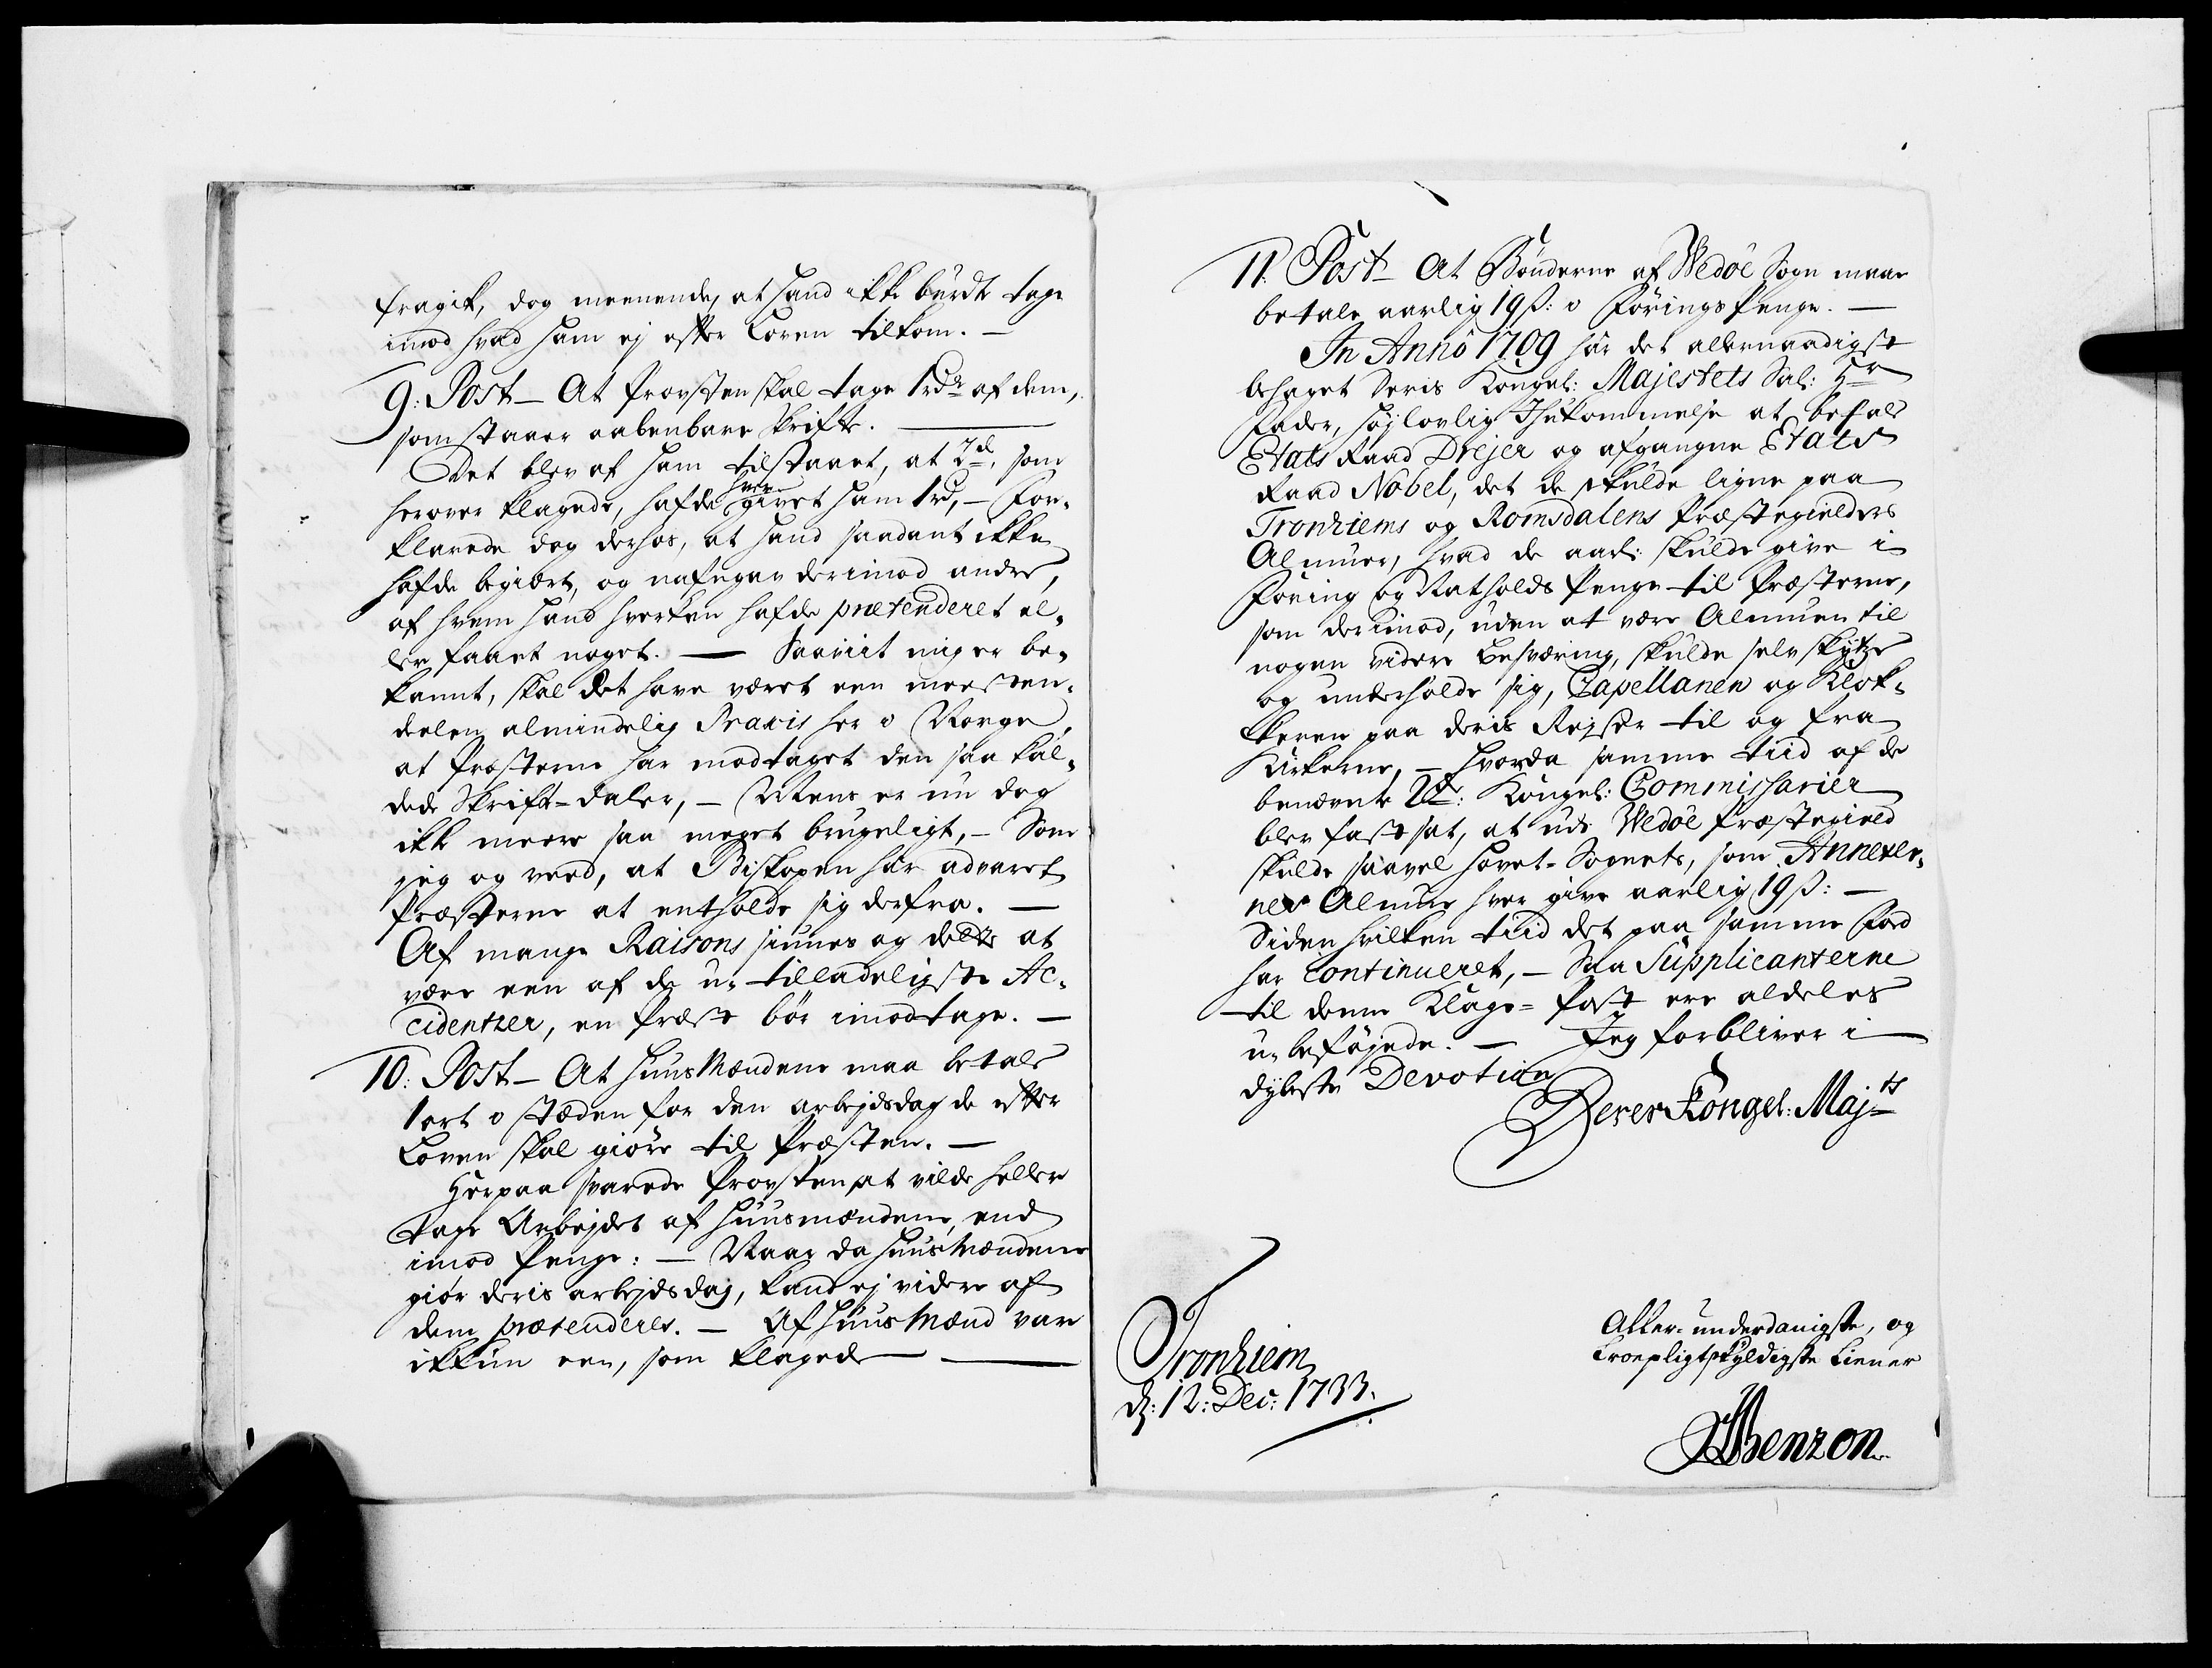 fragik, dog meenende, at hand ikke burdte tage
imod hvad ham ej efter Loven tilkom. —
9: Post — At Provsten skal tage 1 rdr af dem,
som staaer aabenbare Skrifte. —
Det blev af ham tilstaaet, at 2de, som
hver
herover klagede, hafde givet ham 1 rd, — For-
klarede dog derhos, at hand saadant ikke
hafde begiært, og nafngav derimod andre,
af hvem hand hverken hafde prætenderet el-
ler faaet noget. — Saaviit mig er be-
kannt, skal det have været een meesten-
deelen almindelig Praxis her i Norge,
at Præsterne har modtaget den saa kal-
dede Skrift-daler, — Mens er nu dog
ikke meere saa meget brugeligt, — Som
jeg og veed, at Biskopen har advaret
Præsterne at entholde sig derfra. —
Af mange Raisons siunes og dette at
være een af de u-tilladeligste Ac-
cidentzer, en Præst bør imodtage. —
10: Post — At Huusmændene maa betale
1 ort i stæden for den arbejdsdag de efter
Loven skal giøre til Præsten. —
Herpaa svarede Provsten, at vilde heller
tage Arbejdet af Huusmændene, end
imod Penge: — Naar da Huusmændene
giør deris arbejdsdag, kand ej videre af
dem prætenderes. — Af Huusmænd var
ikkun een, som klagede —
11. Post — At Bønderne af Wedøe Sogn maae
betale aarlig 19 ß: i Førings Penge. —
In Anno 1709 har det allernaadigst
behaget Deris Kongel: Majestets Sal: Hr
Fader, højlovlig Ihukommelse at befale
Etats Raad Drejer og afgangne Etats
Raad Nobel, det de skulde ligne paa
Tronhiems og Romsdalens Præstegields
Almuer, hvad de aarl: skulde give i
Føring og Natholds Penge til Præsterne,
som derimod, uden at være Almuen til
nogen videre besværing, skulde selv skytze
og underholde sig, Capellanen og Klok-
keren paa deris Rejser til og fra
Kirkerne, — hvorda samme tiid af de
benævnte 2de: Kongel: Commissarier
blev fastsat, at udi Wedøe Præstegield
skulde saavel Hovet-Sognets, som Annexer-
nes Almue hver give aarlig 19 ß: —
Siden hvilken tiid det paa samme Fod
har Continueret, — Saa Supplicanterne
til denne Klage-Post ere aldeles
u-beføjede. — Jeg forbliver i
dybeste Devotion
Deres Kongel: Majts
Tronhiem
d: 12: Dec: 1733.
Aller-underdanigste, og
troepligtskyldigste tiener
Benzon